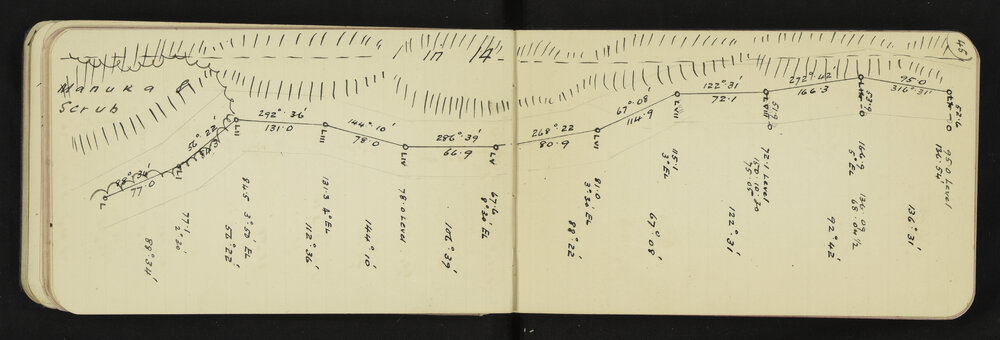 45
17 14
Manuka
Scrub
L
88° 34'
77.0
LI
56° 22'
84.5
LII
292° 36'
131.0
LIII
144° 10'
78.0
LIV
286° 39'
66.9
LV
268° 22
80.9
LVI
67° 08'
114.9
LVII
122° 31'
72.1
LVIII
51.9
272° 42'
166.3
53.9
95.0
316° 31'
52.6
88° 34'
77.1
2° 20'
84.5 3° 57' EL
56° 22'
131.3 4° EL
112° 36'
144° 10'
78.0 Level
106° 39'
67.6
8° 20' EL
88° 22'
81.0
3° 30' EL
67° 08'
115.1
3° EL
122° 31'
72.1 Level
150.10.20
75.05
92° 42'
166.9
5° EL
136.09
68.04 1/2
136° 31'
95.0 Level
136.54'